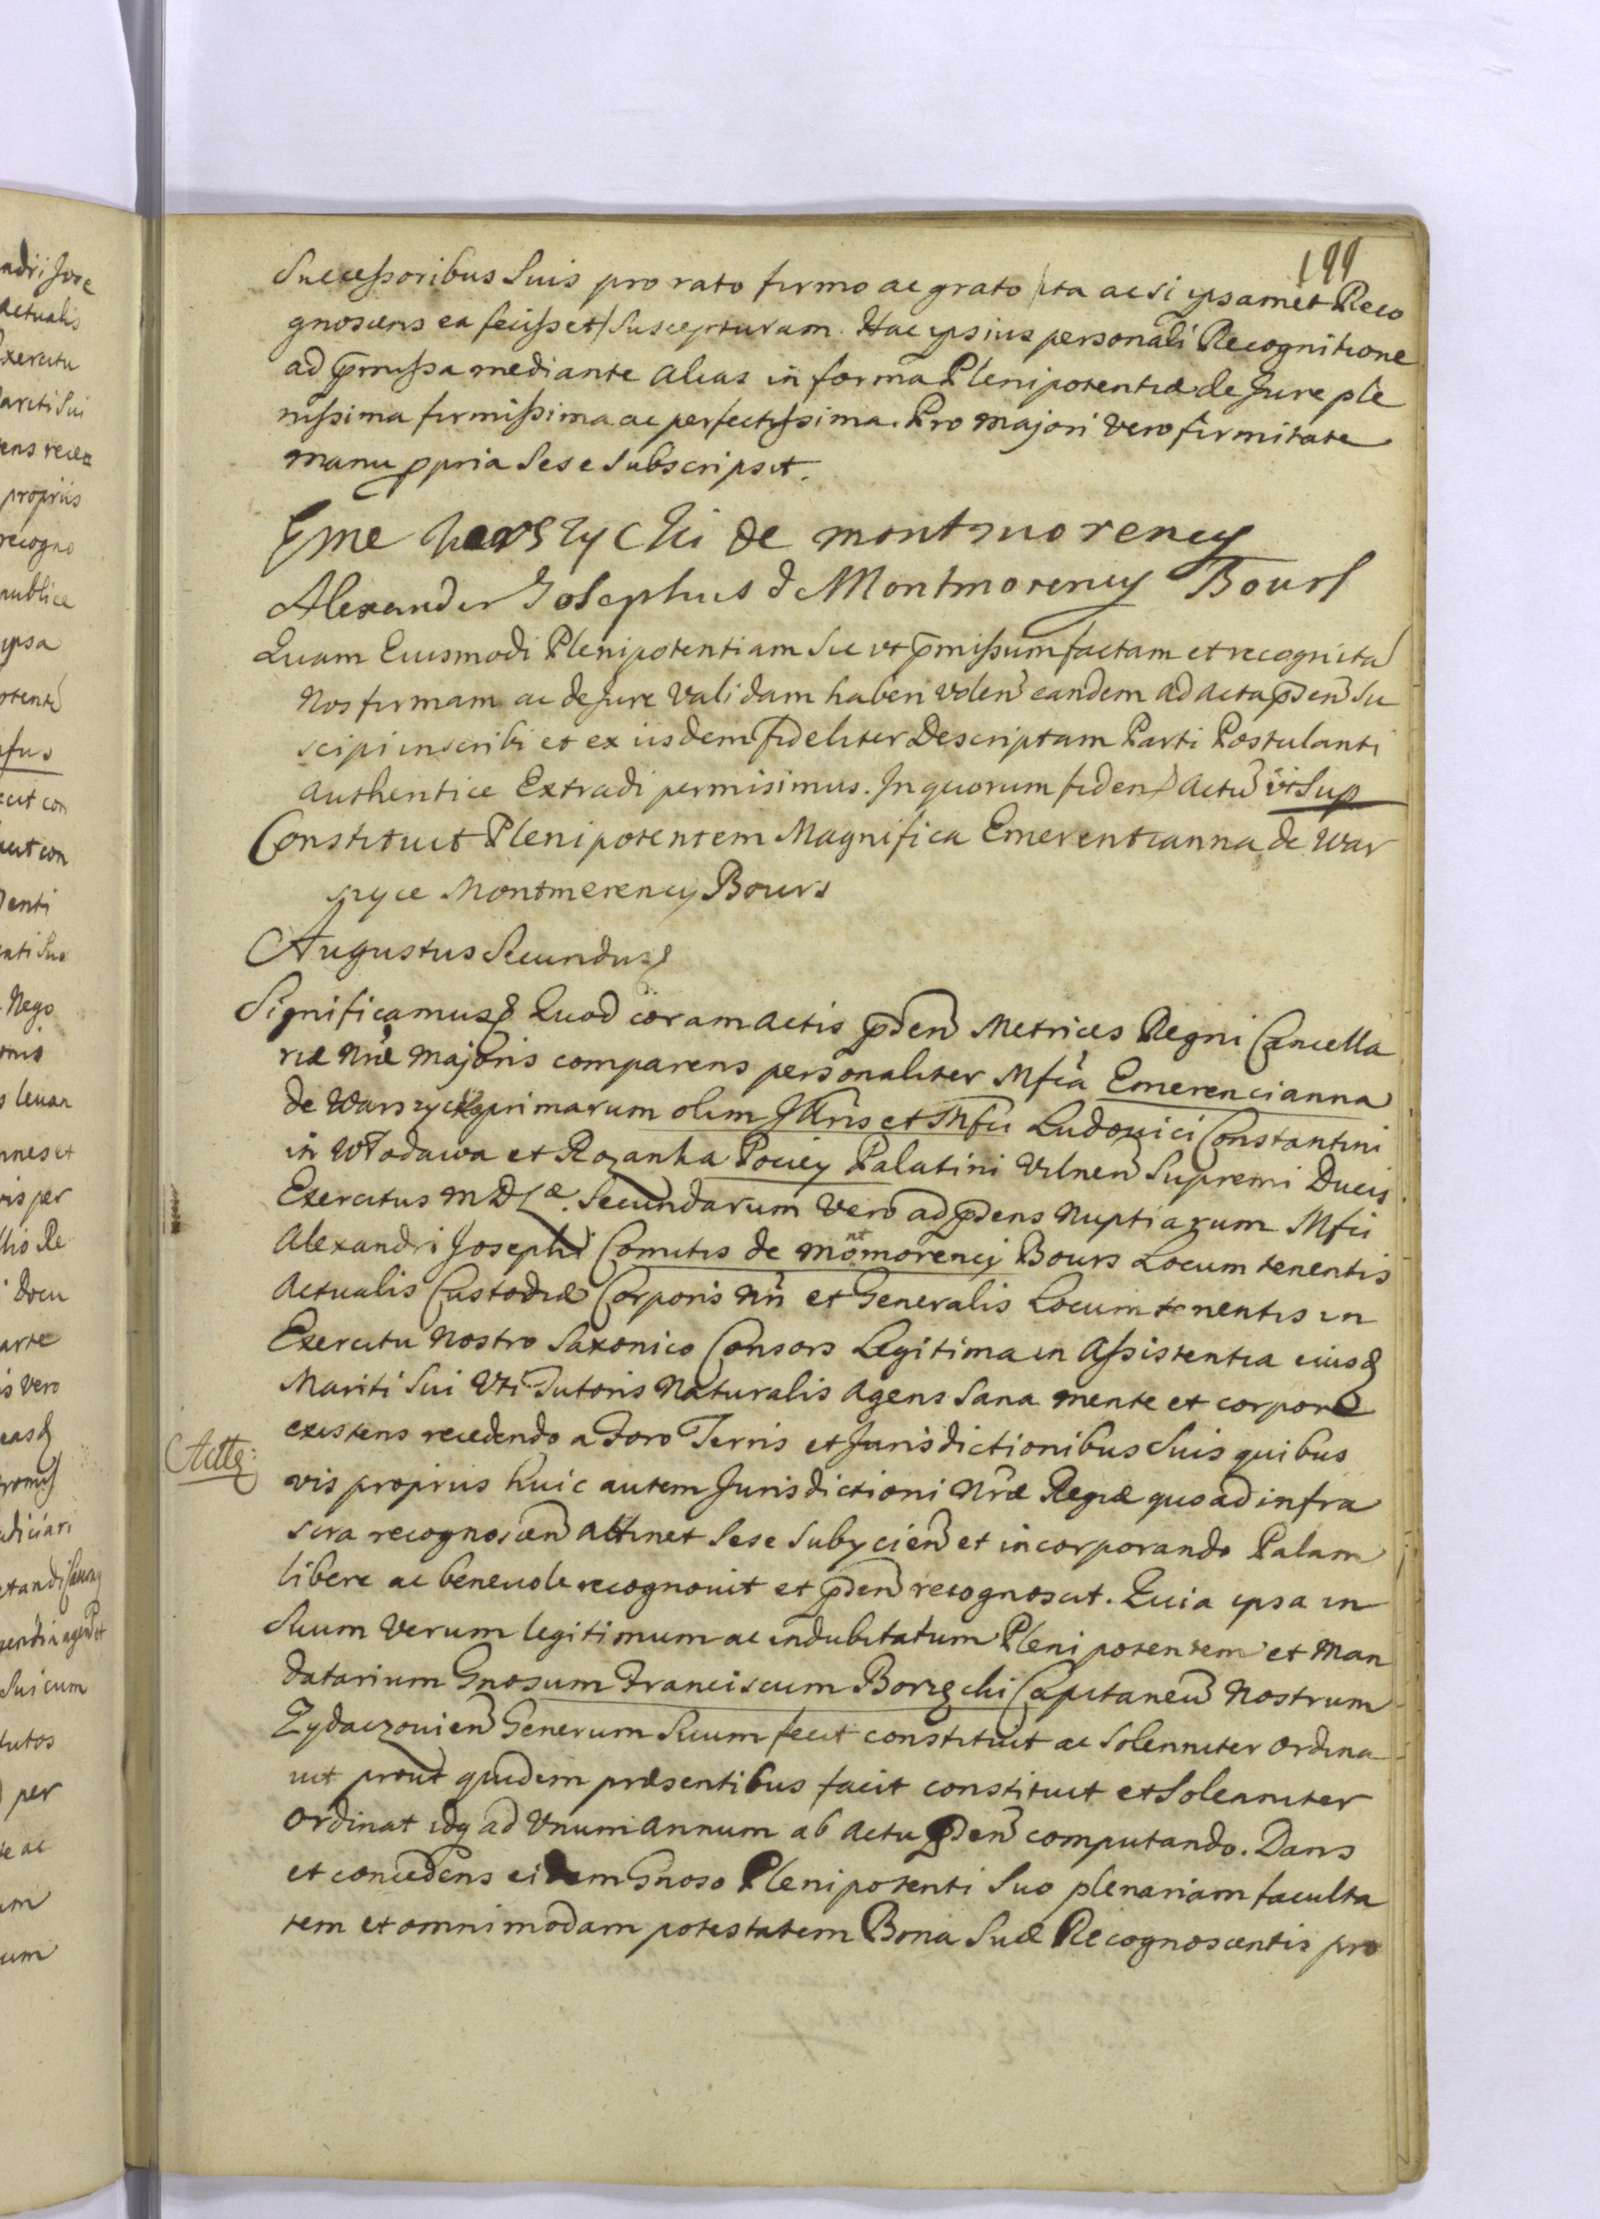 199
Successoribus Suis pro rato firmo ac grato /ita ac si ipsamet Reco
gnoscens ea fecisset/ Suscepturam. Hac ipsius personali Recognitione
ad p̄missa mediante alias in forma Plenipotentiæ de Jure ple
nissima firmissima ac perfectissima. Pro majori vero firmitate
manu ppria Sese Subscripsit.
Eme warszycki de montmorency
Alexander Josephus d Montmorency Bours
Quam Eiusmodi Plenipotentiam Sic vt p̄missum factam et recognita
Nos firmam ac de Jure validam haberi volen̄ eandem ad acta p̄sen̄ Su
scipi inscribi et ex iisdem fideliter Descriptam Parti Postulanti
authentice Extradi permisimus. In quorum fidem Actū vt Sup
Constituit Plenipotentem Magnifica Emerentianna de War
szyce Montmerency Bours
Augustus Secundus
Significamus Quod coram actis p̄sen̄ Metrices Regni Cancella
riæ Nr̄æ Majoris comparens personaliter Mfca Emerencianna
de Warszyckie primarum olim Jllris et Mfci Ludovici Constantini
in Włodawa et Rozanka Pociey Palatini Vilnen̄ Supremi Ducis
Exercitus M D Læ. Secundarum vero ad p̄sens Nuptiarum Mfci
Alexandri Josephi Comitis de Montmorency Bours Locum tenentis
Actualis Custodiæ Corporis Nri et Generalis Locum tenentis in
Exercitu Nostro Saxonico Consors Legitima in Assistentia eiusd
Mariti Sui Vti Tutoris Naturalis agens Sana mente et corpore
existens recedendo a Foro Terris et Jurisdictionibus Suis quibus
Actte:
vis propriis huic autem Jurisdictioni Nr̄æ Regiæ quo ad infra
scra recognoscen̄ attinet Sese Subycien̄ et incorporando Palam
libere ac benevole recognovit et p̄sen̄ recognoscit. Quia ipsa in
Suum Verum legitimum ac indubitatum Plenipotentem et Man
datarium Gnosum Franciscum Borzecki Capitaneū Nostrum
Zydaczovien̄ Generum Suum fecit constituit ac Solenniter ordina
vit prout quidem præsentibus facit constituit et Solenniter
ordinat idq ad Vnum annum ab actu p̄sen̄ computando. Dans
et concedens eidem Gnoso Plenipotenti Suo plenariam faculta
tem et omnimodam potestatem Bona Suæ Recognoscentis pro